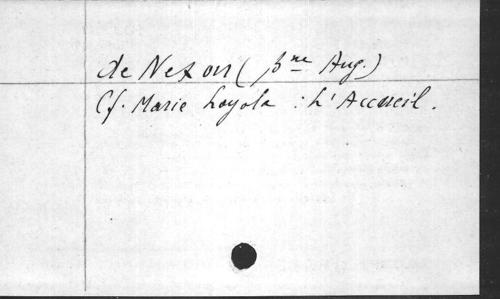 de Nexon (Bne Aug.)
Cf. Marie Loyola : L'Accueil.